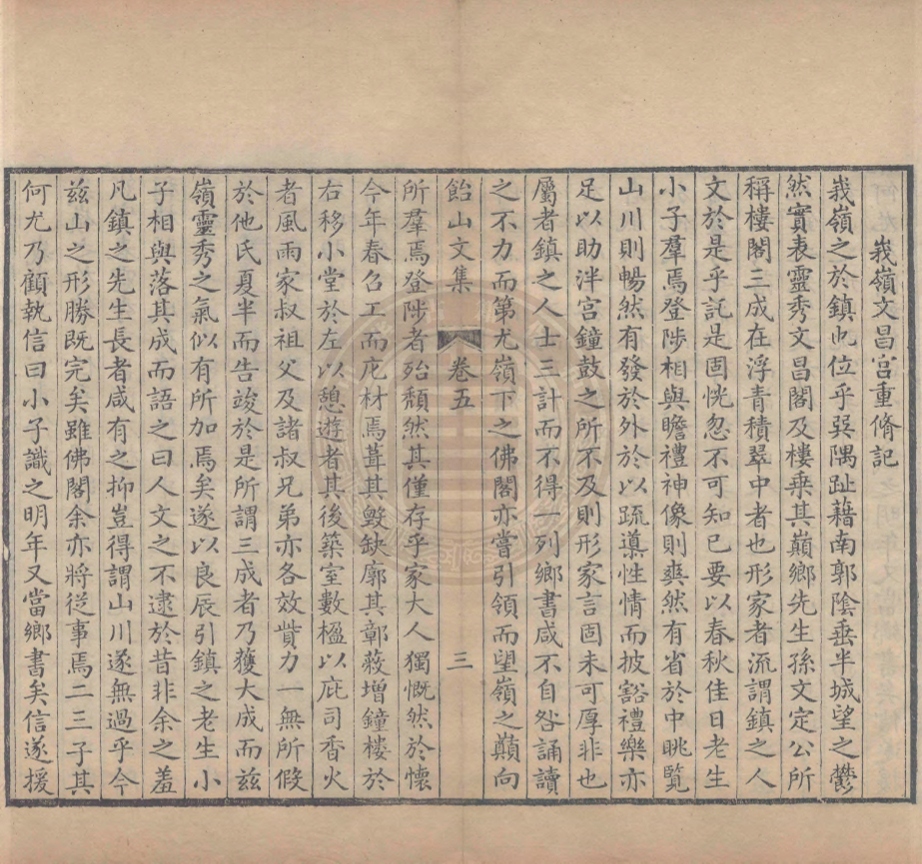 峩嶺文昌宮重脩記
峩嶺之於鎮也位乎巽隅趾藉南郭陰垂半城望之鬱
然實表靈秀文昌閣及樓乗其巔鄉先生孫文定公所
稱樓閣三成在浮青積翠中者也形家者流謂鎮之人
文於是乎託是固恍忽不可知已要以春秋佳日老生
小子羣焉登陟相與瞻禮神像則爽然有省於中眺覽
山川則暢然有發於外於以疏導性情而披豁禮樂亦
足以助泮宮鐘鼓之所不及則形家言固未可厚非也
屬者鎮之人士三計而不得一列鄉書咸不自咎誦讀
之不力而第尤嶺下之佛閣亦嘗引領而望嶺之巔向
飴山文集 卷五 三
所羣焉登陟者殆頽然其僅存乎家大人獨慨然於懷
今年春召工而庀材焉葺其毀缺廓其彰蔽增鐘樓於
右移小堂於左以憩遊者其後築室數楹以庇司香火
者風雨家叔祖父及諸叔兄弟亦各效貲力一無所假
於他氏夏半而告竣於是所謂三成者乃獲大成而茲
嶺靈秀之氣似有所加焉矣遂以良辰引鎮之老生小
子相與落其成而語之曰人文之不逮於昔非余之羞
凡鎮之先生長者咸有之抑豈得謂山川遂無過乎今
茲山之形勝既完矣雖佛閣余亦將従事焉二三子其
何尤乃顧執信曰小子識之明年又當鄉書矣信遂援